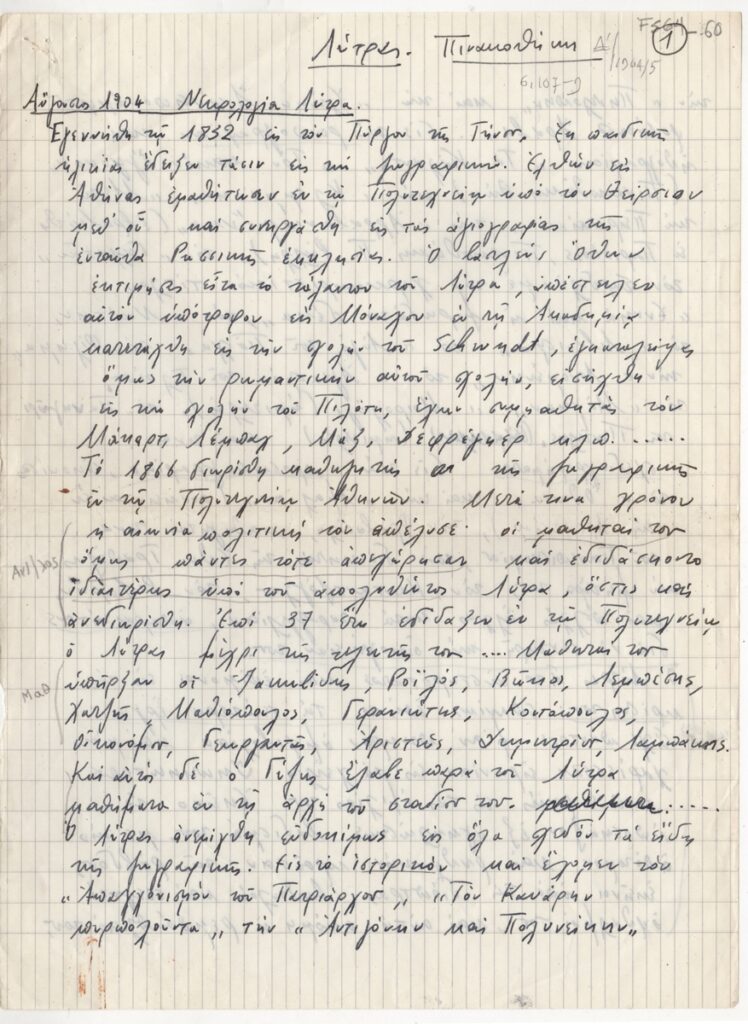 Λύτρας. Πινακοθήκη Δ'/1904/5
σ. 107-9
①-60
Αὔγουστος 1904 Νεκρολογία Λύτρα.
Ἐγεννήθη τῷ 1832 εἰς τὸν Πύργον τῆς Τήνου. Ἐκ παιδικῆς
ἡλικίας ἔδειξεν τάσιν εἰς τὴν ζωγραφικήν. Ἐλθὼν εἰς
Ἀθήνας ἐμαθήτευσεν ἐν τῷ Πολυτεχνείῳ ὑπὸ τὸν Θείρσιον
μεθ' οὗ καὶ συνειργάσθη εἰς τὰς ἁγιογραφίας τῆς
ἐνταῦθα Ρωσσικῆς ἐκκλησίας. Ὁ βασιλεὺς Ὄθων
ἐκτιμήσας εἶτα τὸ τάλαντον τοῦ Λύτρα, ὑπέστειλεν
αὐτὸν ὑπότροφον εἰς Μόναχον ἐν τῇ Ἀκαδημίᾳ
κατετάχθη εἰς τὴν σχολὴν τοῦ Schmidt, ἐγκαταλείψας
ὅμως τὴν ρωμαντικὴν αὐτοῦ σχολήν, εἰσήχθη
εἰς τὴν σχολὴν τοῦ Πιλότη, ἔχων συμμαθητὰς τὸν
Μάκαρτ, Λέμπαχ, Μάξ, Δεφρέγκερ κλπ. .....
Τὸ 1866 διωρίσθη καθηγητὴς τῆς ζωγραφικῆς
ἐν τῷ Πολυτεχνείῳ Ἀθηνῶν. Μετά τινα χρόνον
ἡ αἰωνία πολιτικὴ τὸν ἀπέλυσε· οἱ μαθηταί του
ὅμως πάντες τότε ἀπεχώρησαν καὶ ἐδιδάσκοντο
ἰδιαιτέρως ὑπὸ τοῦ ἀπολυθέντος Λύτρα, ὅστις καὶ
ἀνεδιωρίσθη. Ἐπὶ 37 ἔτη ἐδίδαξεν ἐν τῷ Πολυτεχνείῳ
ὁ Λύτρας μέχρι τῆς τελευτῆς του .... Μαθηταί του
Μαθ
ὑπῆρξαν οἱ Ἰακωβίδης, Ροϊλός, Βῶκος, Λεμπέσης,
Χατζῆς, Μαθιόπουλος, Γερανιώτης, Κοντόπουλος,
Οἰκονόμου, Γεωργαντᾶς, Ἀριστεύς, Δημητρίου, Λαμπάκης.
Καὶ αὐτὸς δὲ ὁ Γύζης ἔλαβε παρὰ τοῦ Λύτρα
μαθήματα ἐν τῇ ἀρχῇ τοῦ σταδίου του. .....
Ὁ Λύτρας ἀνεμίχθη εὐδοκίμως εἰς ὅλα σχεδὸν τὰ εἴδη
τῆς ζωγραφικῆς. Εἰς τὸ ἱστορικὸν καὶ ἔχομεν τὸν
„Ἀπαγχονισμὸν τοῦ Πατριάρχου„ „Τὸν Κανάρην
πυρπολοῦντα„ τὴν „Ἀντιγόνην καὶ Πολυνείκην„